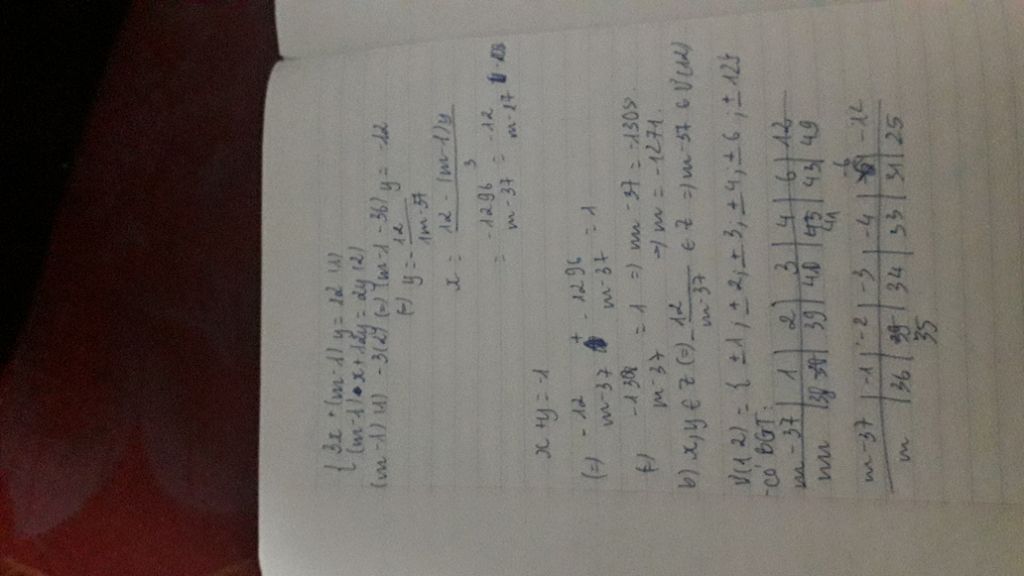 { 3x + (m-1)y = 12 (1)
(m-1)x + 12y = 24 (2)
(m-1)(1) - 3(2) (=) (m-1-36)y = -12
(=) y = -12 / m-37
x = 12 - (m-1)y / 3
= -1296 / m-37 = -12 / m-27
x + y = -1
(=) -12 / m-37 + -1296 / m-37 = 1
(=) -130 / m-37 = 1 => m-37 = -1308
=> m = -1271
b) x, y ∈ Z (=) -12 / m-37 ∈ Z => m-37 ∈ Ư(12)
Ư(12) = { ±1; ±2; ±3; ±4; ±6; ±12}
-Có BGT:
m-37 | 1 | 2 | 3 | 4 | 6 | 12
m | 38 | 39 | 40 | 41 | 43 | 49
m-37 | -1 | -2 | -3 | -4 | -6 | -12
m | 36 | 35 | 34 | 33 | 31 | 25